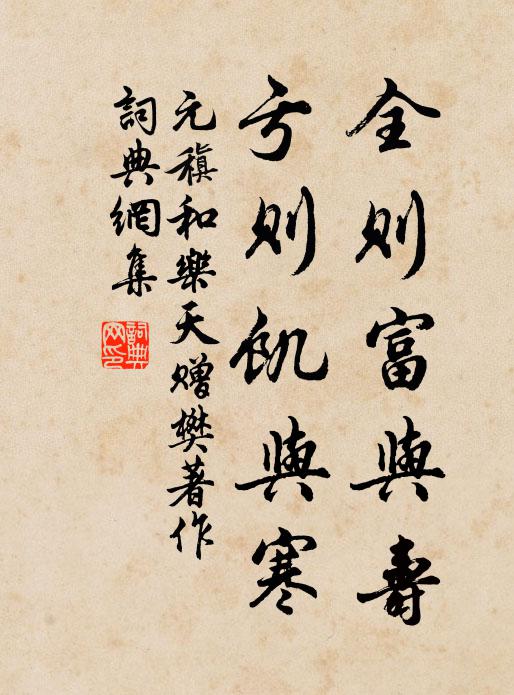 全則富與壽
亏則飢與寒
元稹和樂天贈樊著作
詞典網集
詞典網印